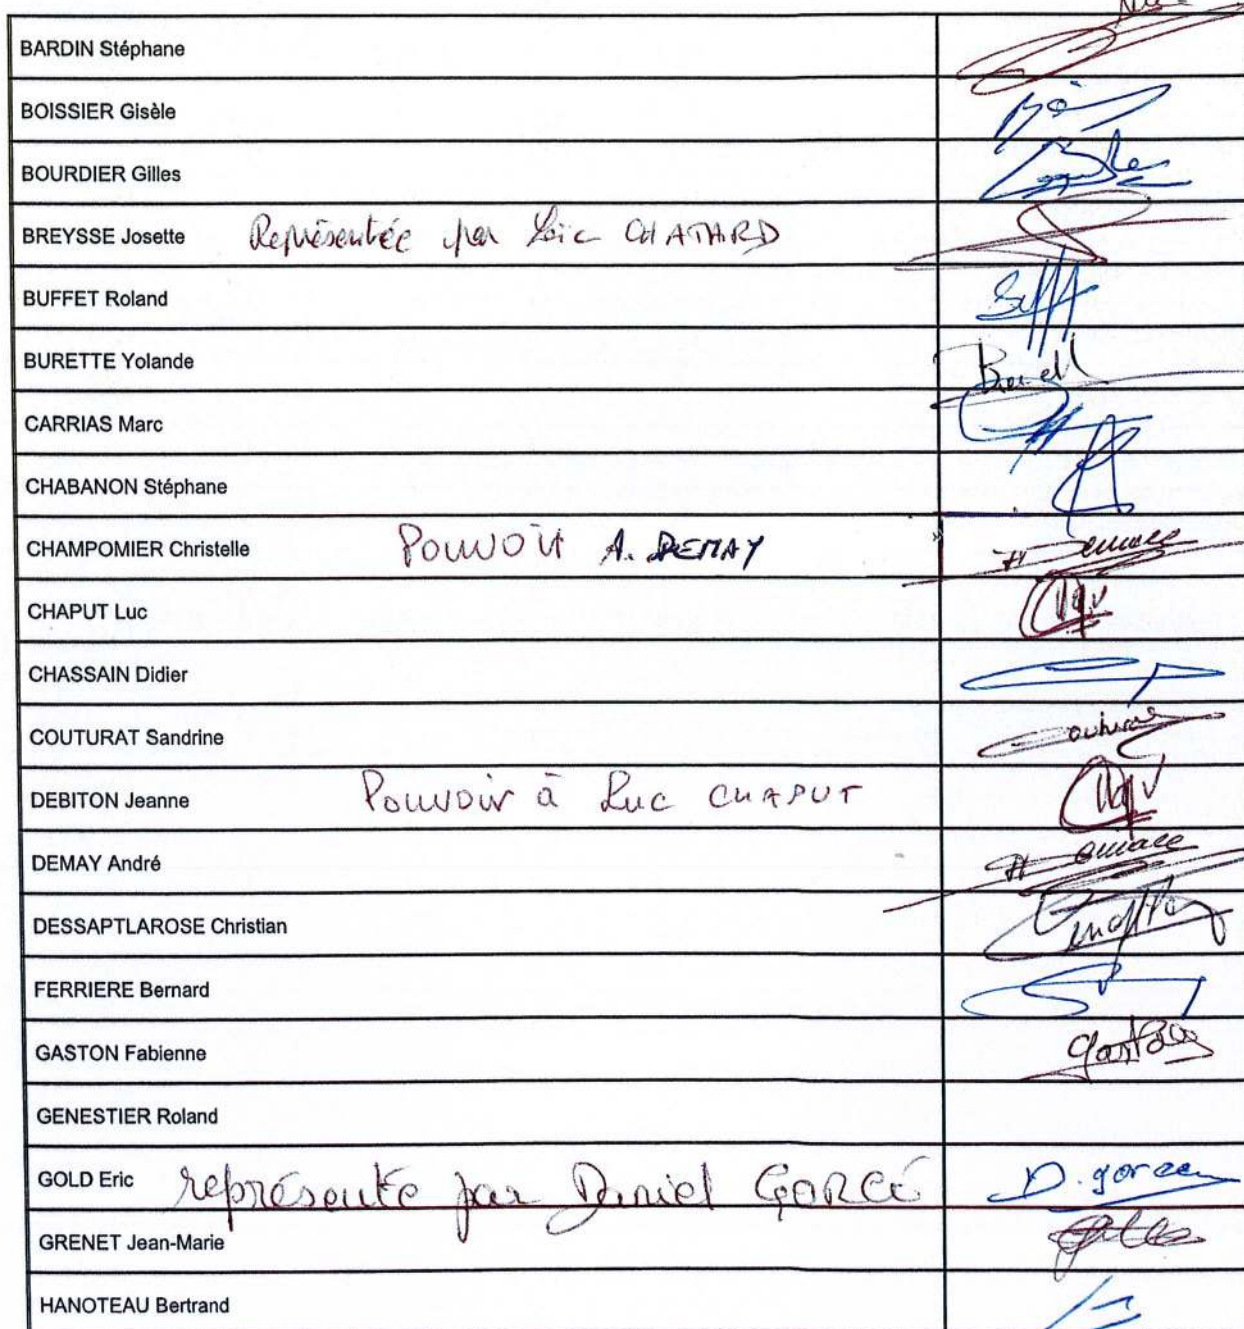 BARDIN Stéphane
BOISSIER Gisèle
BOURDIER Gilles
BREYSSE Josette Représentée par Loïc CHATARD
BUFFET Roland
BURETTE Yolande
CARRIAS Marc
CHABANON Stéphane
CHAMPOMIER Christelle Pouvoir A. DEMAY
CHAPUT Luc
CHASSAIN Didier
COUTURAT Sandrine
DEBITON Jeanne Pouvoir à Luc CHAPUT
DEMAY André
DESSAPTLAROSE Christian
FERRIERE Bernard
GASTON Fabienne
GENESTIER Roland
GOLD Eric représenté par Daniel GORCE D. gorce
GRENET Jean-Marie
HANOTEAU Bertrand